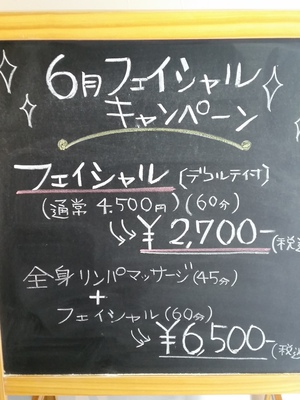 6月フェイシャル
キャンペーン
フェイシャル〔デコルテ付〕
(通常 4.500円)(60分)
¥2,700-(税
全身リンパマッサージ(45分)
+
フェイシャル(60分)
¥6,500-(税